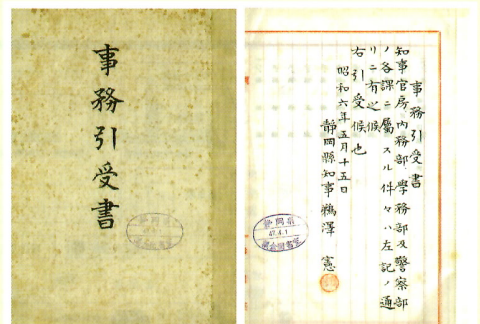 事務引受書
事務引受書
知事官房、内務部、學務部及警察部
ノ各課ニ屬スル件々ハ左記ノ通
リニ有之候
右引受候也
昭和六年五月十五日
靜岡縣知事鵜澤憲
47.4.1